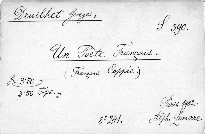 Druilhet Georges. S 590.
Un Poète Français.
(François Coppée.)
3·50
3·50
8° 241. Paris 1902.
Alph. Lemerre.